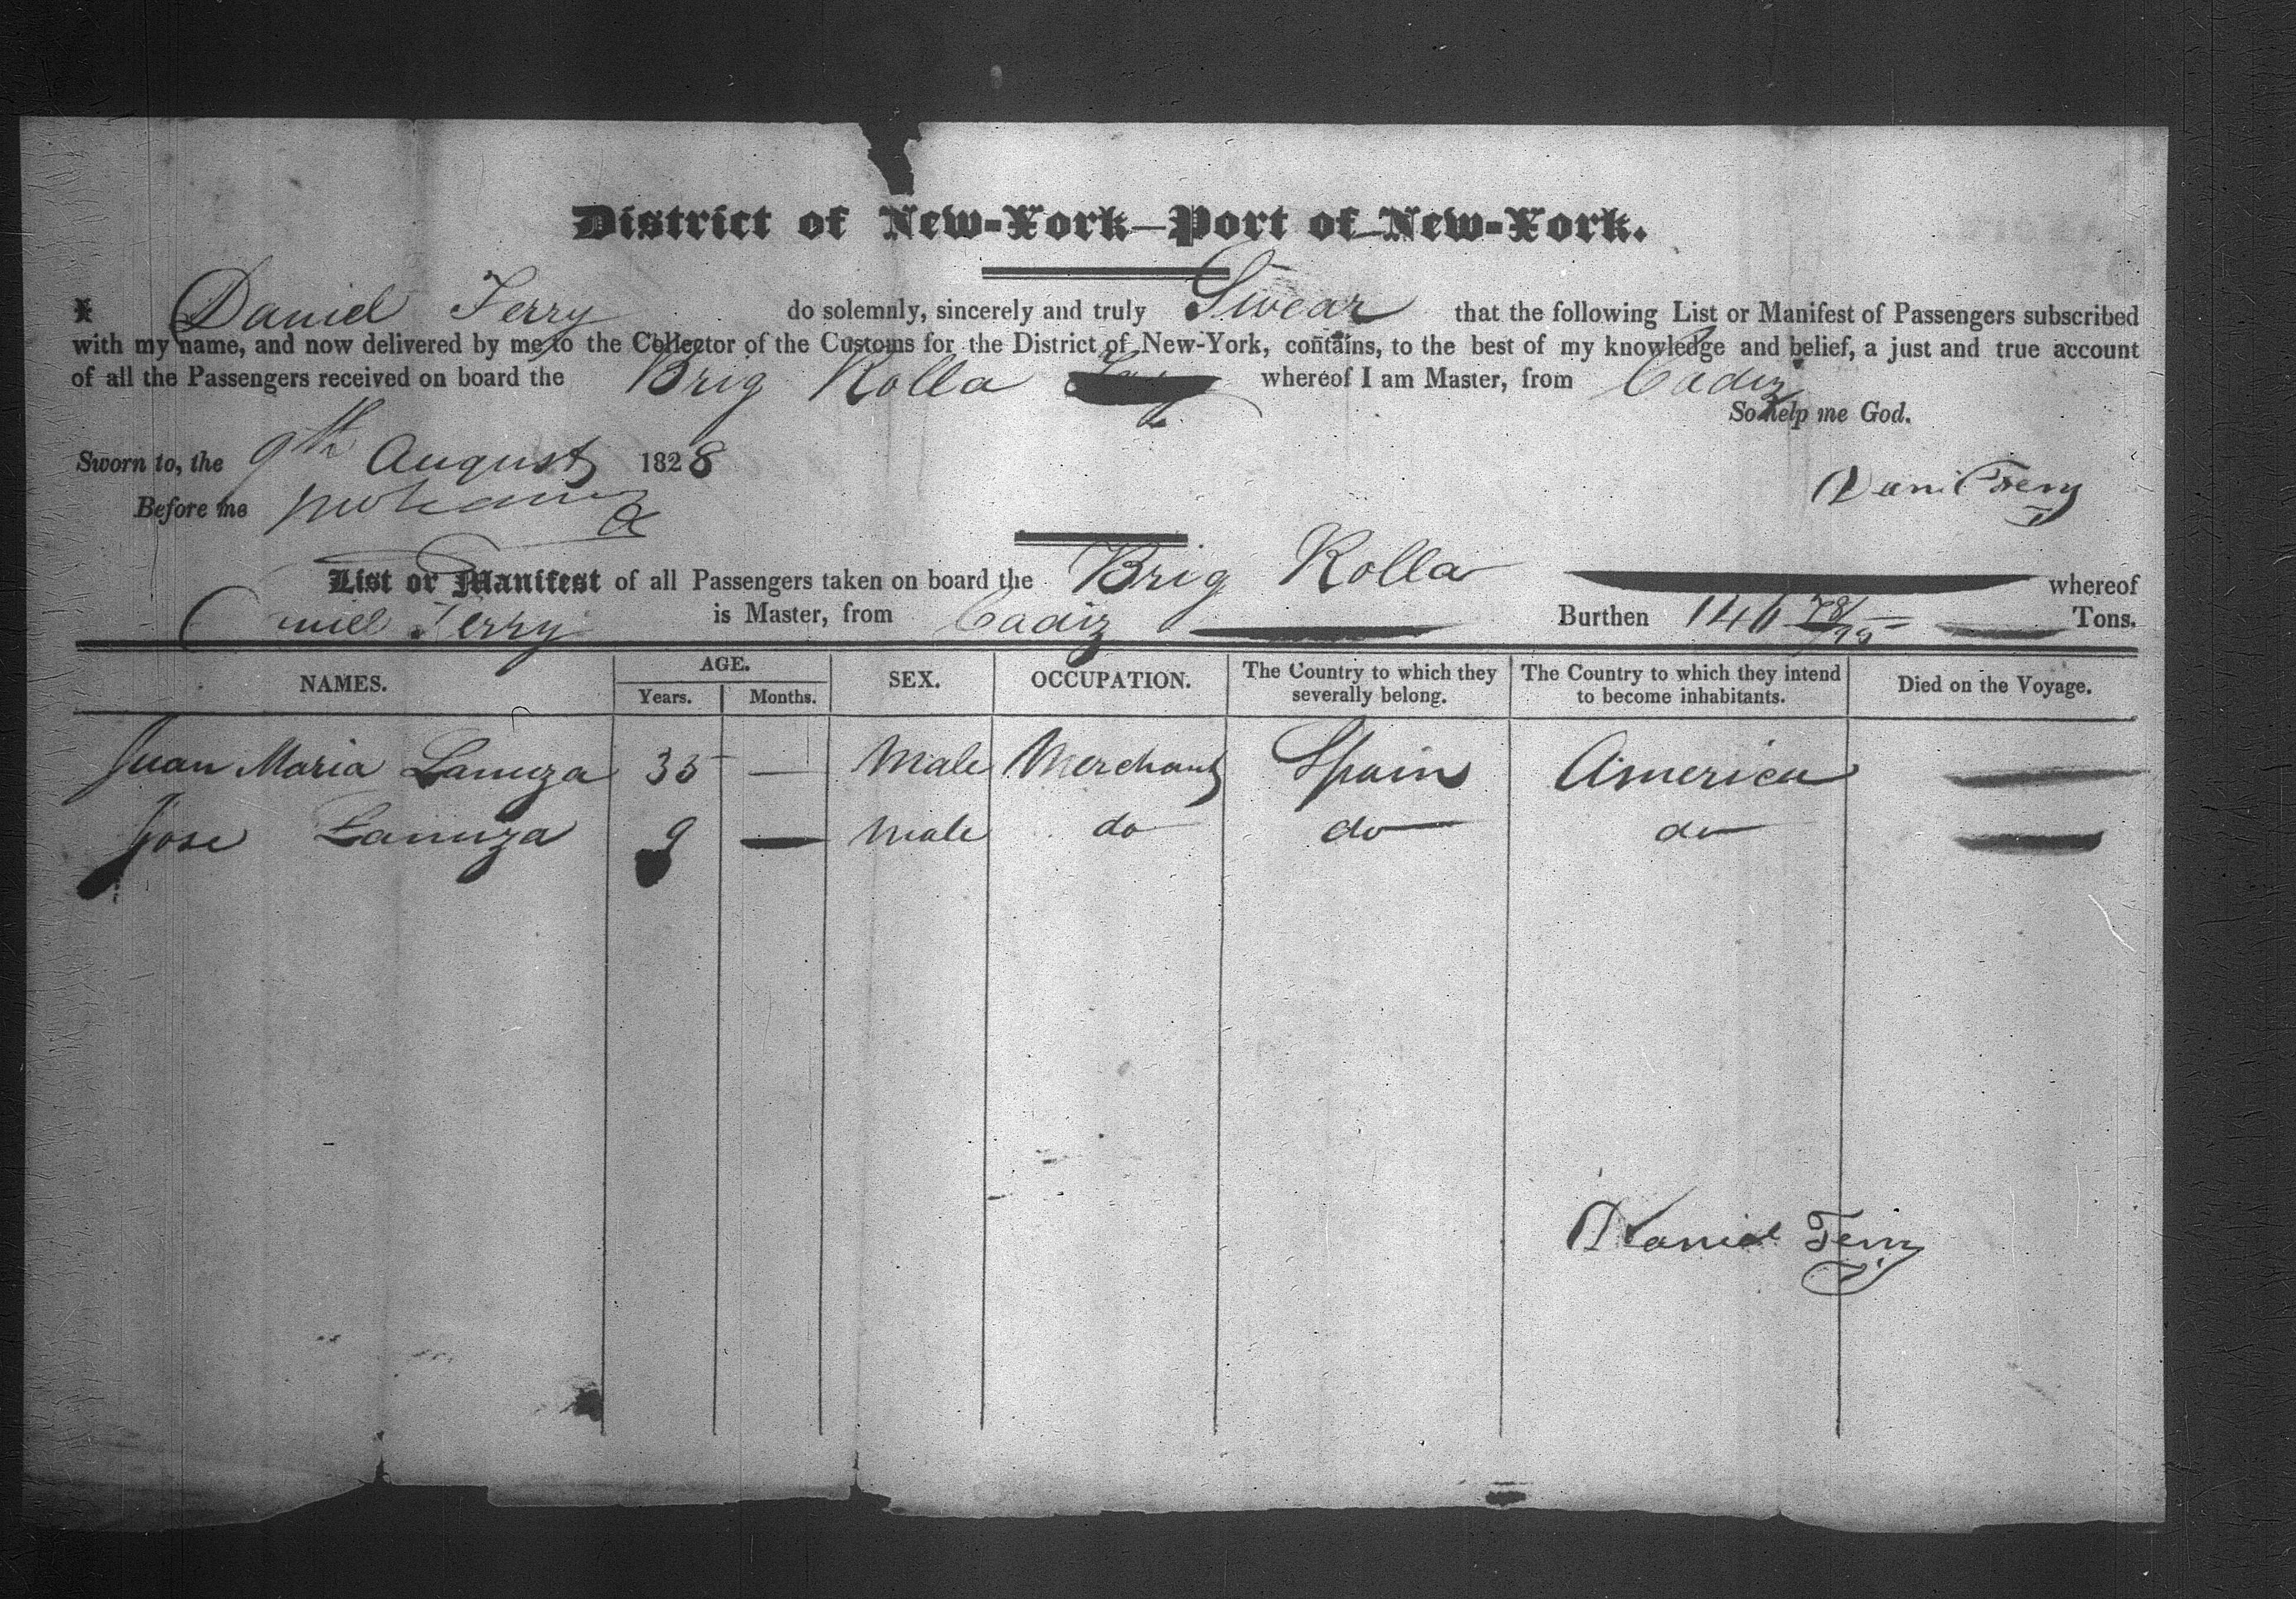 District of New-York—Port of New-York.
I Daniel Terry do solemnly, sincerely and truly Swear that the following List or Manifest of Passengers subscribed
with my name, and now delivered by me to the Collector of the Customs for the District of New-York, contains, to the best of my knowledge and belief, a just and true account
of all the Passengers received on board the Brig Rolla whereof I am Master, from Cadiz
So help me God.
Sworn to, the 9th August 1828
Daniel Terry
Before me
List or Manifest of all Passengers taken on board the Brig Rolla whereof
Daniel Terry is Master, from Cadiz Burthen 146 78/95 Tons.
NAMES. AGE. Years. Months. SEX. OCCUPATION. The Country to which they severally belong. The Country to which they intend to become inhabitants. Died on the Voyage.
Juan Maria Lanuza 35 — Male Merchant Spain America —
Jose Lanuza 9 — Male do do do —
Daniel Terry